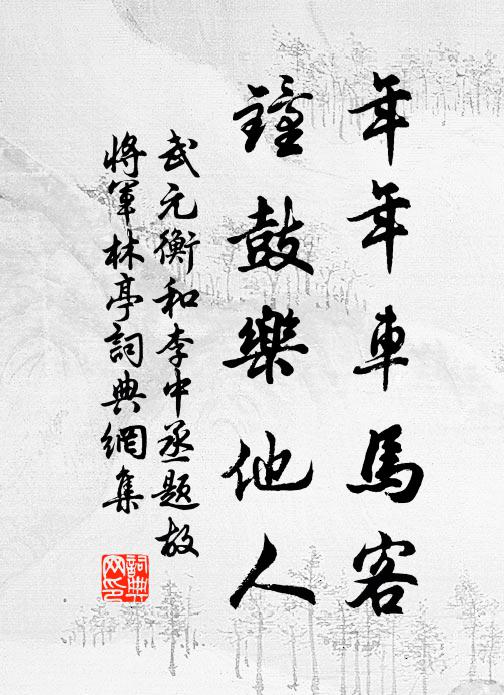 年年車馬客
鐘鼓樂他人
武元衡和李中丞題故
將軍林亭詞典網集
詞典
网印